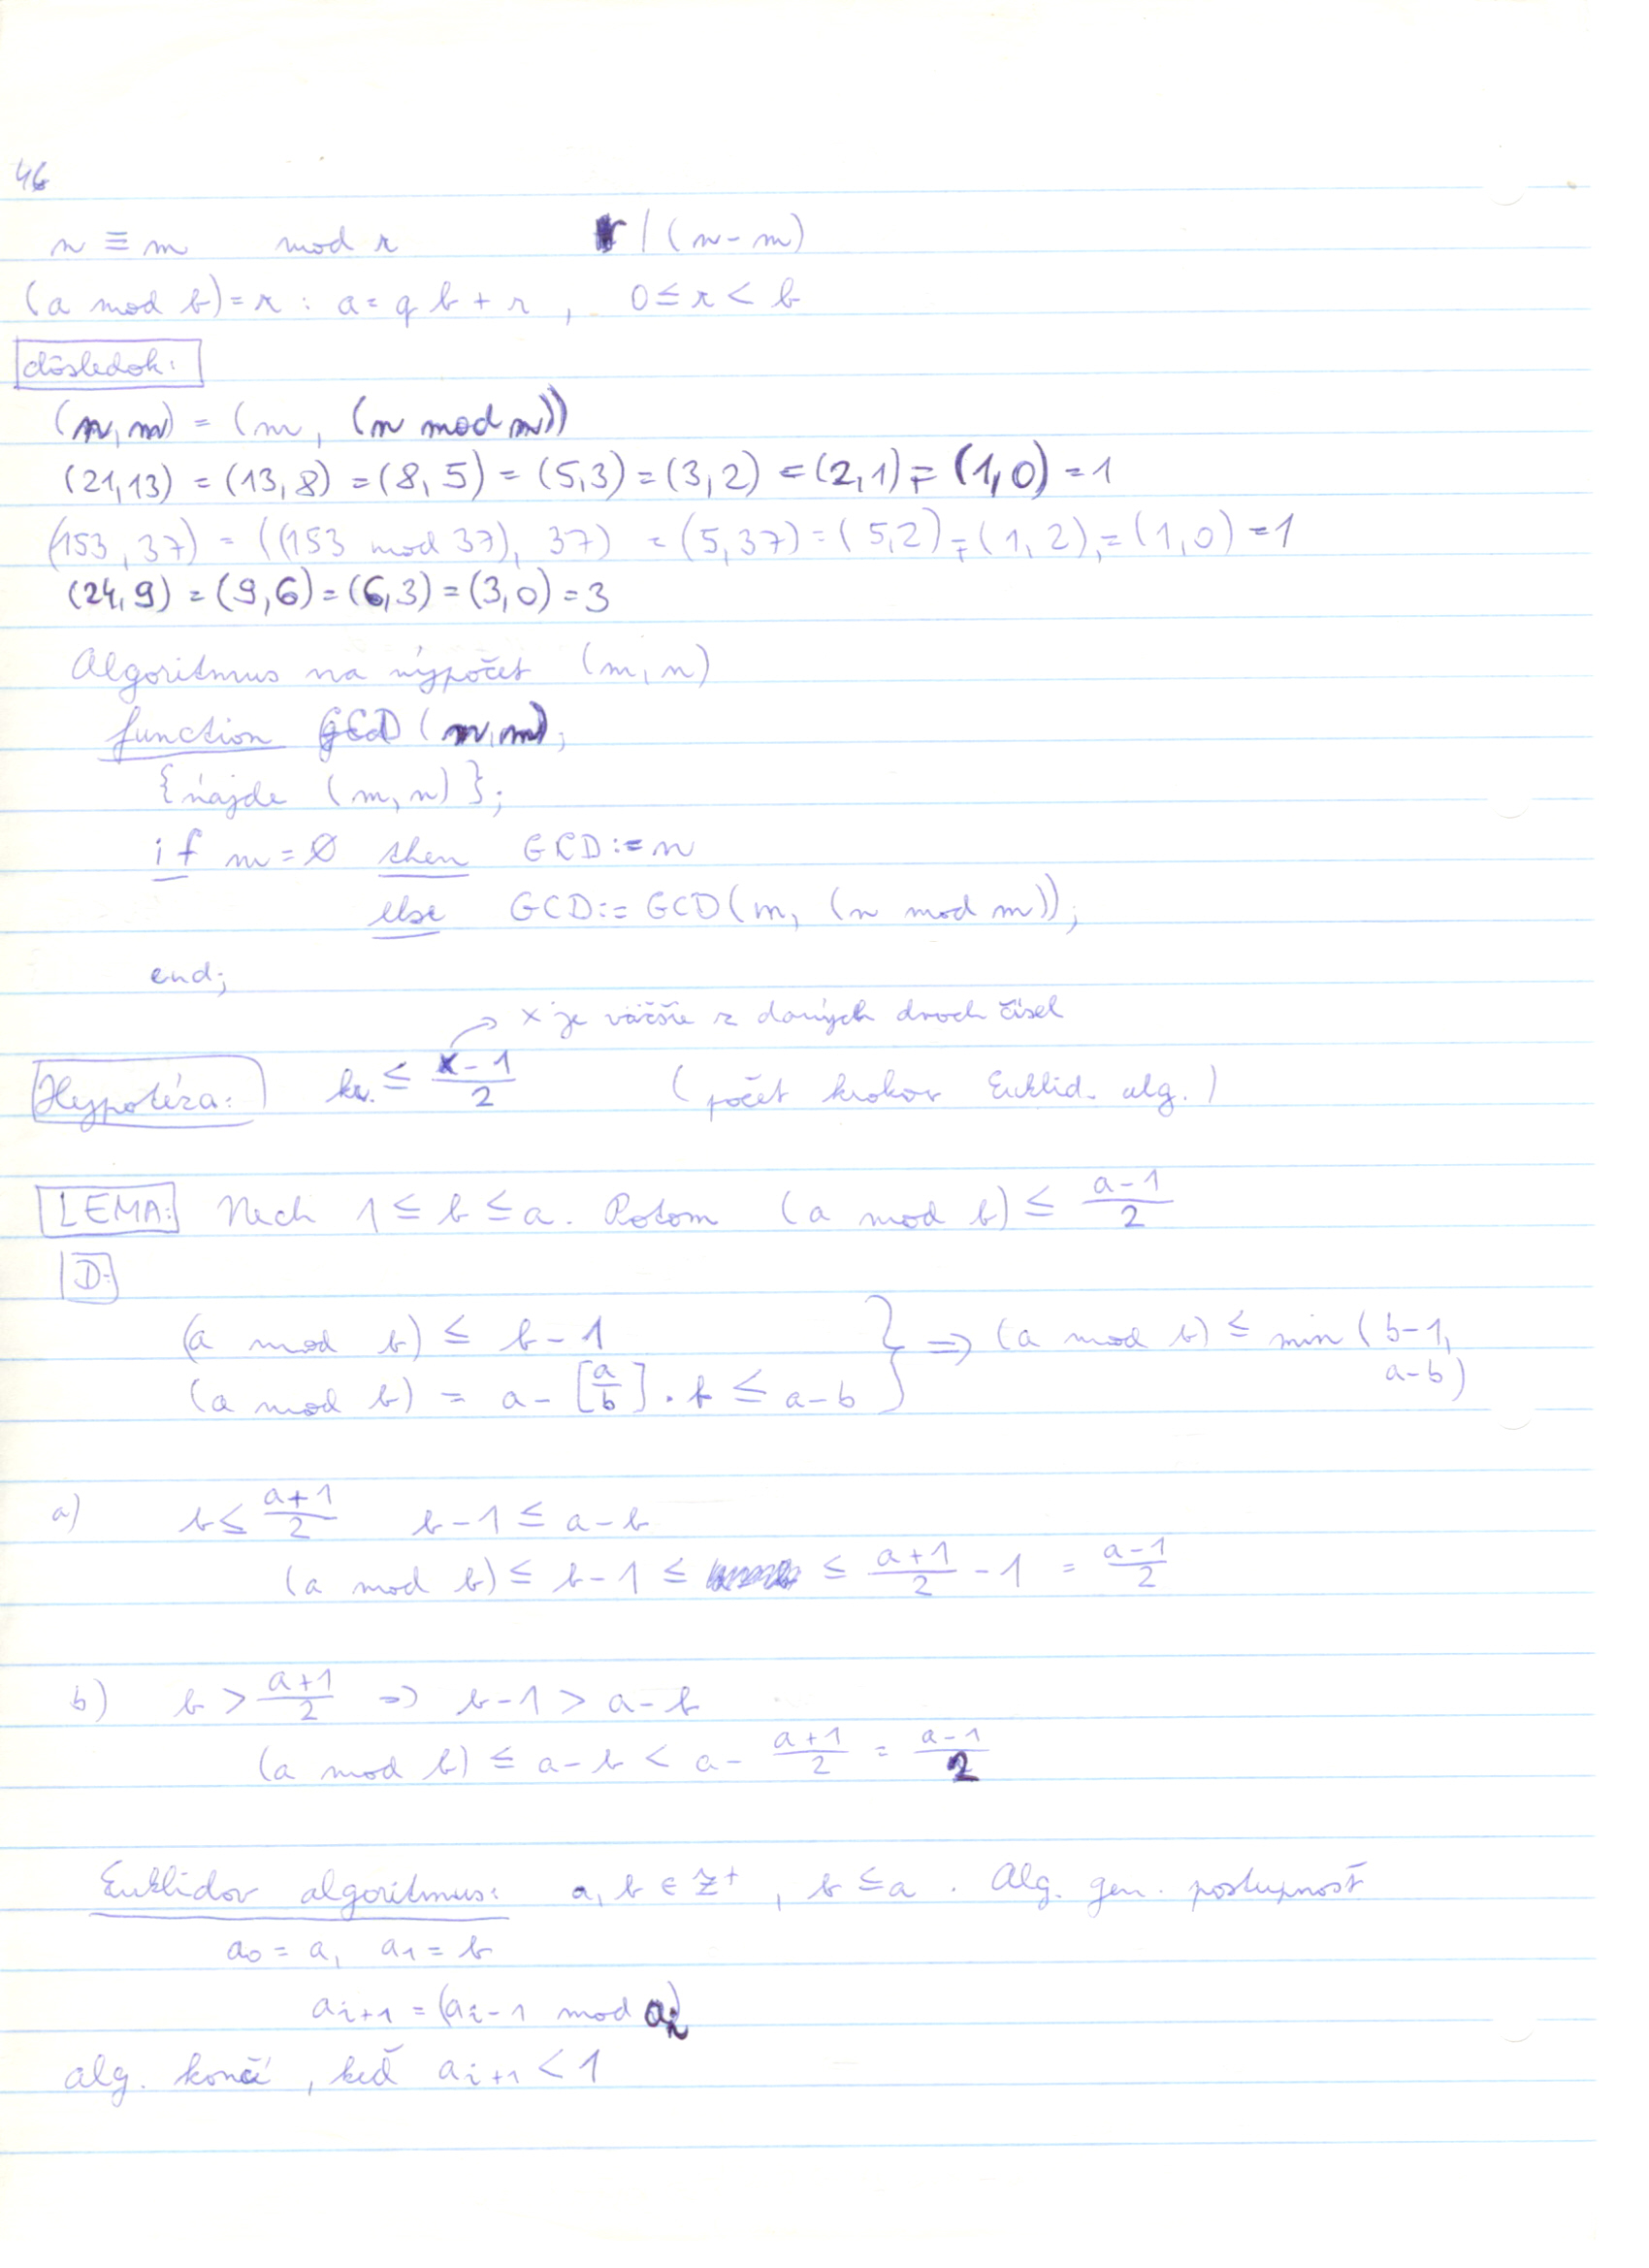 46
n ≡ m mod r r | (n - m)
(a mod b) = r : a = q b + r , 0 ≤ r < b
dôsledok:
(n, m) = (m, (n mod m))
(21,13) = (13,8) = (8,5) = (5,3) = (3,2) = (2,1) = (1,0) = 1
(153,37) = ((153 mod 37), 37) = (5,37) = (5,2) = (1,2) = (1,0) = 1
(24,9) = (9,6) = (6,3) = (3,0) = 3
Algoritmus na výpočet (m, n)
function GCD (n, m);
{nájde (m, n)};
if m = 0 then GCD := n
else GCD := GCD(m, (n mod m));
end;
→ x je väčšie z daných dvoch čísel
Hypotéza: k ≤ \frac{x-1}{2} (počet krokov Euklid. alg.)
LEMA: Nech 1 ≤ b ≤ a. Potom (a mod b) ≤ \frac{a-1}{2}
D:
(a mod b) ≤ b - 1 } ⇒ (a mod b) ≤ min (b-1,
(a mod b) = a - [\frac{a}{b}] · b ≤ a - b a-b)
a) b ≤ \frac{a+1}{2} b - 1 ≤ a - b
(a mod b) ≤ b - 1 ≤ ≤ \frac{a+1}{2} - 1 = \frac{a-1}{2}
b) b > \frac{a+1}{2} ⇒ b - 1 > a - b
(a mod b) ≤ a - b < a - \frac{a+1}{2} = \frac{a-1}{2}
Euklidov algoritmus: a, b ∈ Z⁺, b ≤ a. Alg. gen. postupnosť
a₀ = a, a₁ = b
aᵢ₊₁ = (aᵢ₋₁ mod aᵢ)
alg. končí, keď aᵢ₊₁ < 1